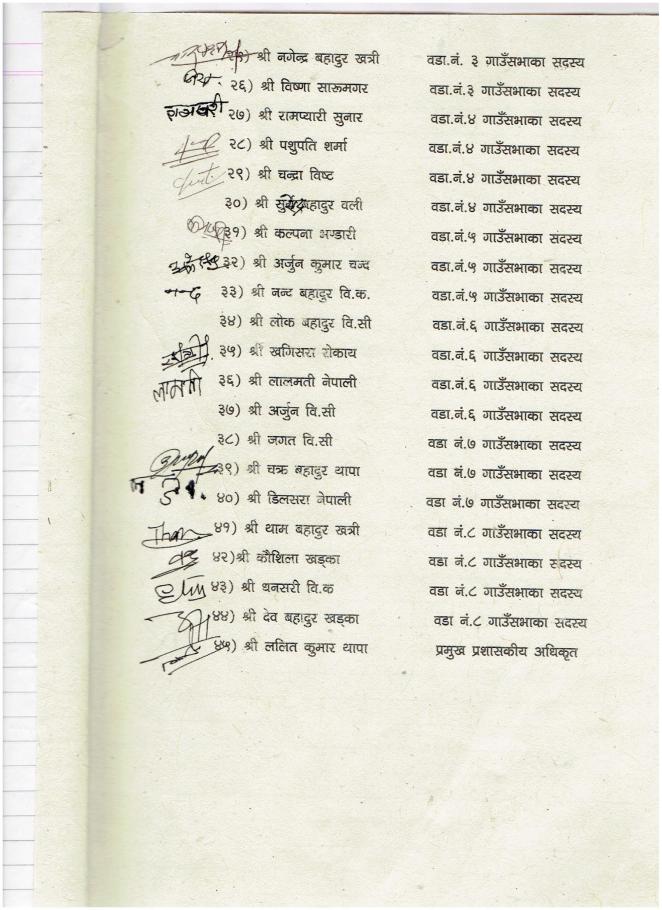 २५) श्री नगेन्द्र बहादुर खत्री वडा.नं. ३ गाउँसभाका सदस्य
२६) श्री विष्णा सारूमगर वडा.नं.३ गाउँसभाका सदस्य
२७) श्री रामप्यारी सुनार वडा.नं.४ गाउँसभाका सदस्य
२८) श्री पशुपति शर्मा वडा.नं.४ गाउँसभाका सदस्य
२९) श्री चन्द्रा विष्ट वडा.नं.४ गाउँसभाका सदस्य
३०) श्री बहादुर वली वडा.नं.४ गाउँसभाका सदस्य
३१) श्री कल्पना भण्डारी वडा.नं.५ गाउँसभाका सदस्य
३२) श्री अर्जुन कुमार चन्द वडा.नं.५ गाउँसभाका सदस्य
नन्द ३३) श्री नन्द बहादुर वि.क. वडा.नं.५ गाउँसभाका सदस्य
३४) श्री लोक बहादुर वि.सी वडा.नं.६ गाउँसभाका सदस्य
३५) श्री खगिसरा रोकाय वडा.नं.६ गाउँसभाका सदस्य
लालमती ३६) श्री लालमती नेपाली वडा.नं.६ गाउँसभाका सदस्य
३७) श्री अर्जुन वि.सी वडा.नं.६ गाउँसभाका सदस्य
३८) श्री जगत वि.सी वडा नं.७ गाउँसभाका सदस्य
३९) श्री चक्र बहादुर थापा वडा नं.७ गाउँसभाका सदस्य
४०) श्री डिलसरा नेपाली वडा नं.७ गाउँसभाका सदस्य
४१) श्री थाम बहादुर खत्री वडा नं.८ गाउँसभाका सदस्य
४२)श्री कौशिला खड्का वडा नं.८ गाउँसभाका सदस्य
४३) श्री धनसरी वि.क वडा नं.८ गाउँसभाका सदस्य
४४) श्री देव बहादुर खड्का वडा नं.८ गाउँसभाका सदस्य
४५) श्री ललित कुमार थापा प्रमुख प्रशासकीय अधिकृत